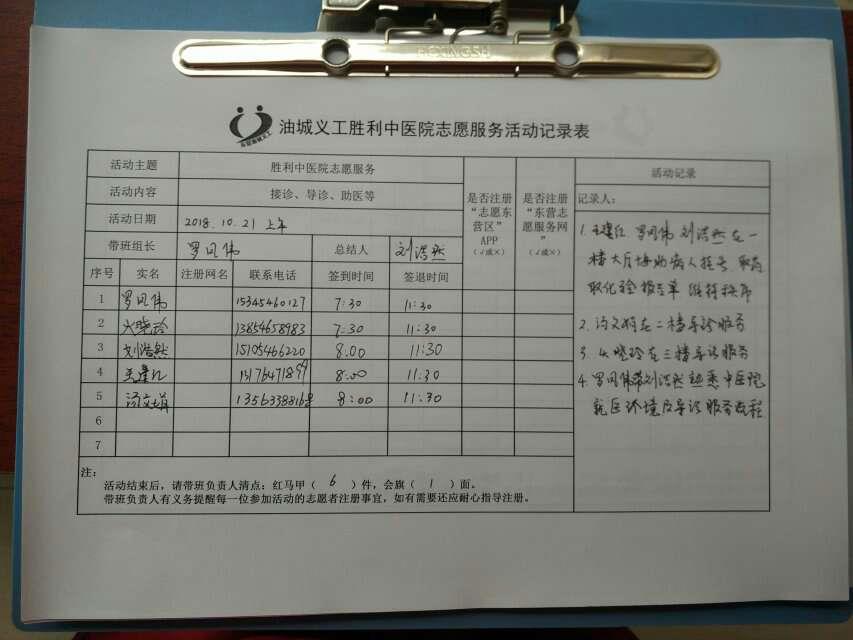 HEXINGSH
油城义工胜利中医院志愿服务活动记录表
活动主题 胜利中医院志愿服务 是否注册“志愿东营区”APP（√或×） 是否注册“东营志愿服务网”（√或×） 活动记录
活动内容 接诊、导诊、助医等 记录人：
活动日期 2018.10.21 上午
带班组长 罗凤伟 总结人 刘浩然
序号 实名 注册网名 联系电话 签到时间 签退时间
1 罗凤伟 15345460127 7:30 11:30
2 晓玲 13854658983 7:30 11:30
3 刘浩然 15105466220 8:00 11:30
4 13176471899 8:00 11:30
5 汤文娟 13563388168 8:00 11:30
6
7
1. 罗凤伟 刘浩然在一
楼大厅协助病人挂号 取药
取化验报告单 维持秩序
2. 汤文娟在二楼导诊服务
3. 晓玲在三楼导诊服务
4. 罗凤伟带刘浩然熟悉中医院
就医环境及导诊服务流程
注：
活动结束后，请带班负责人清点：红马甲（ 6 ）件，会旗（ 1 ）面。
带班负责人有义务提醒每一位参加活动的志愿者注册事宜，如有需要还应耐心指导注册。